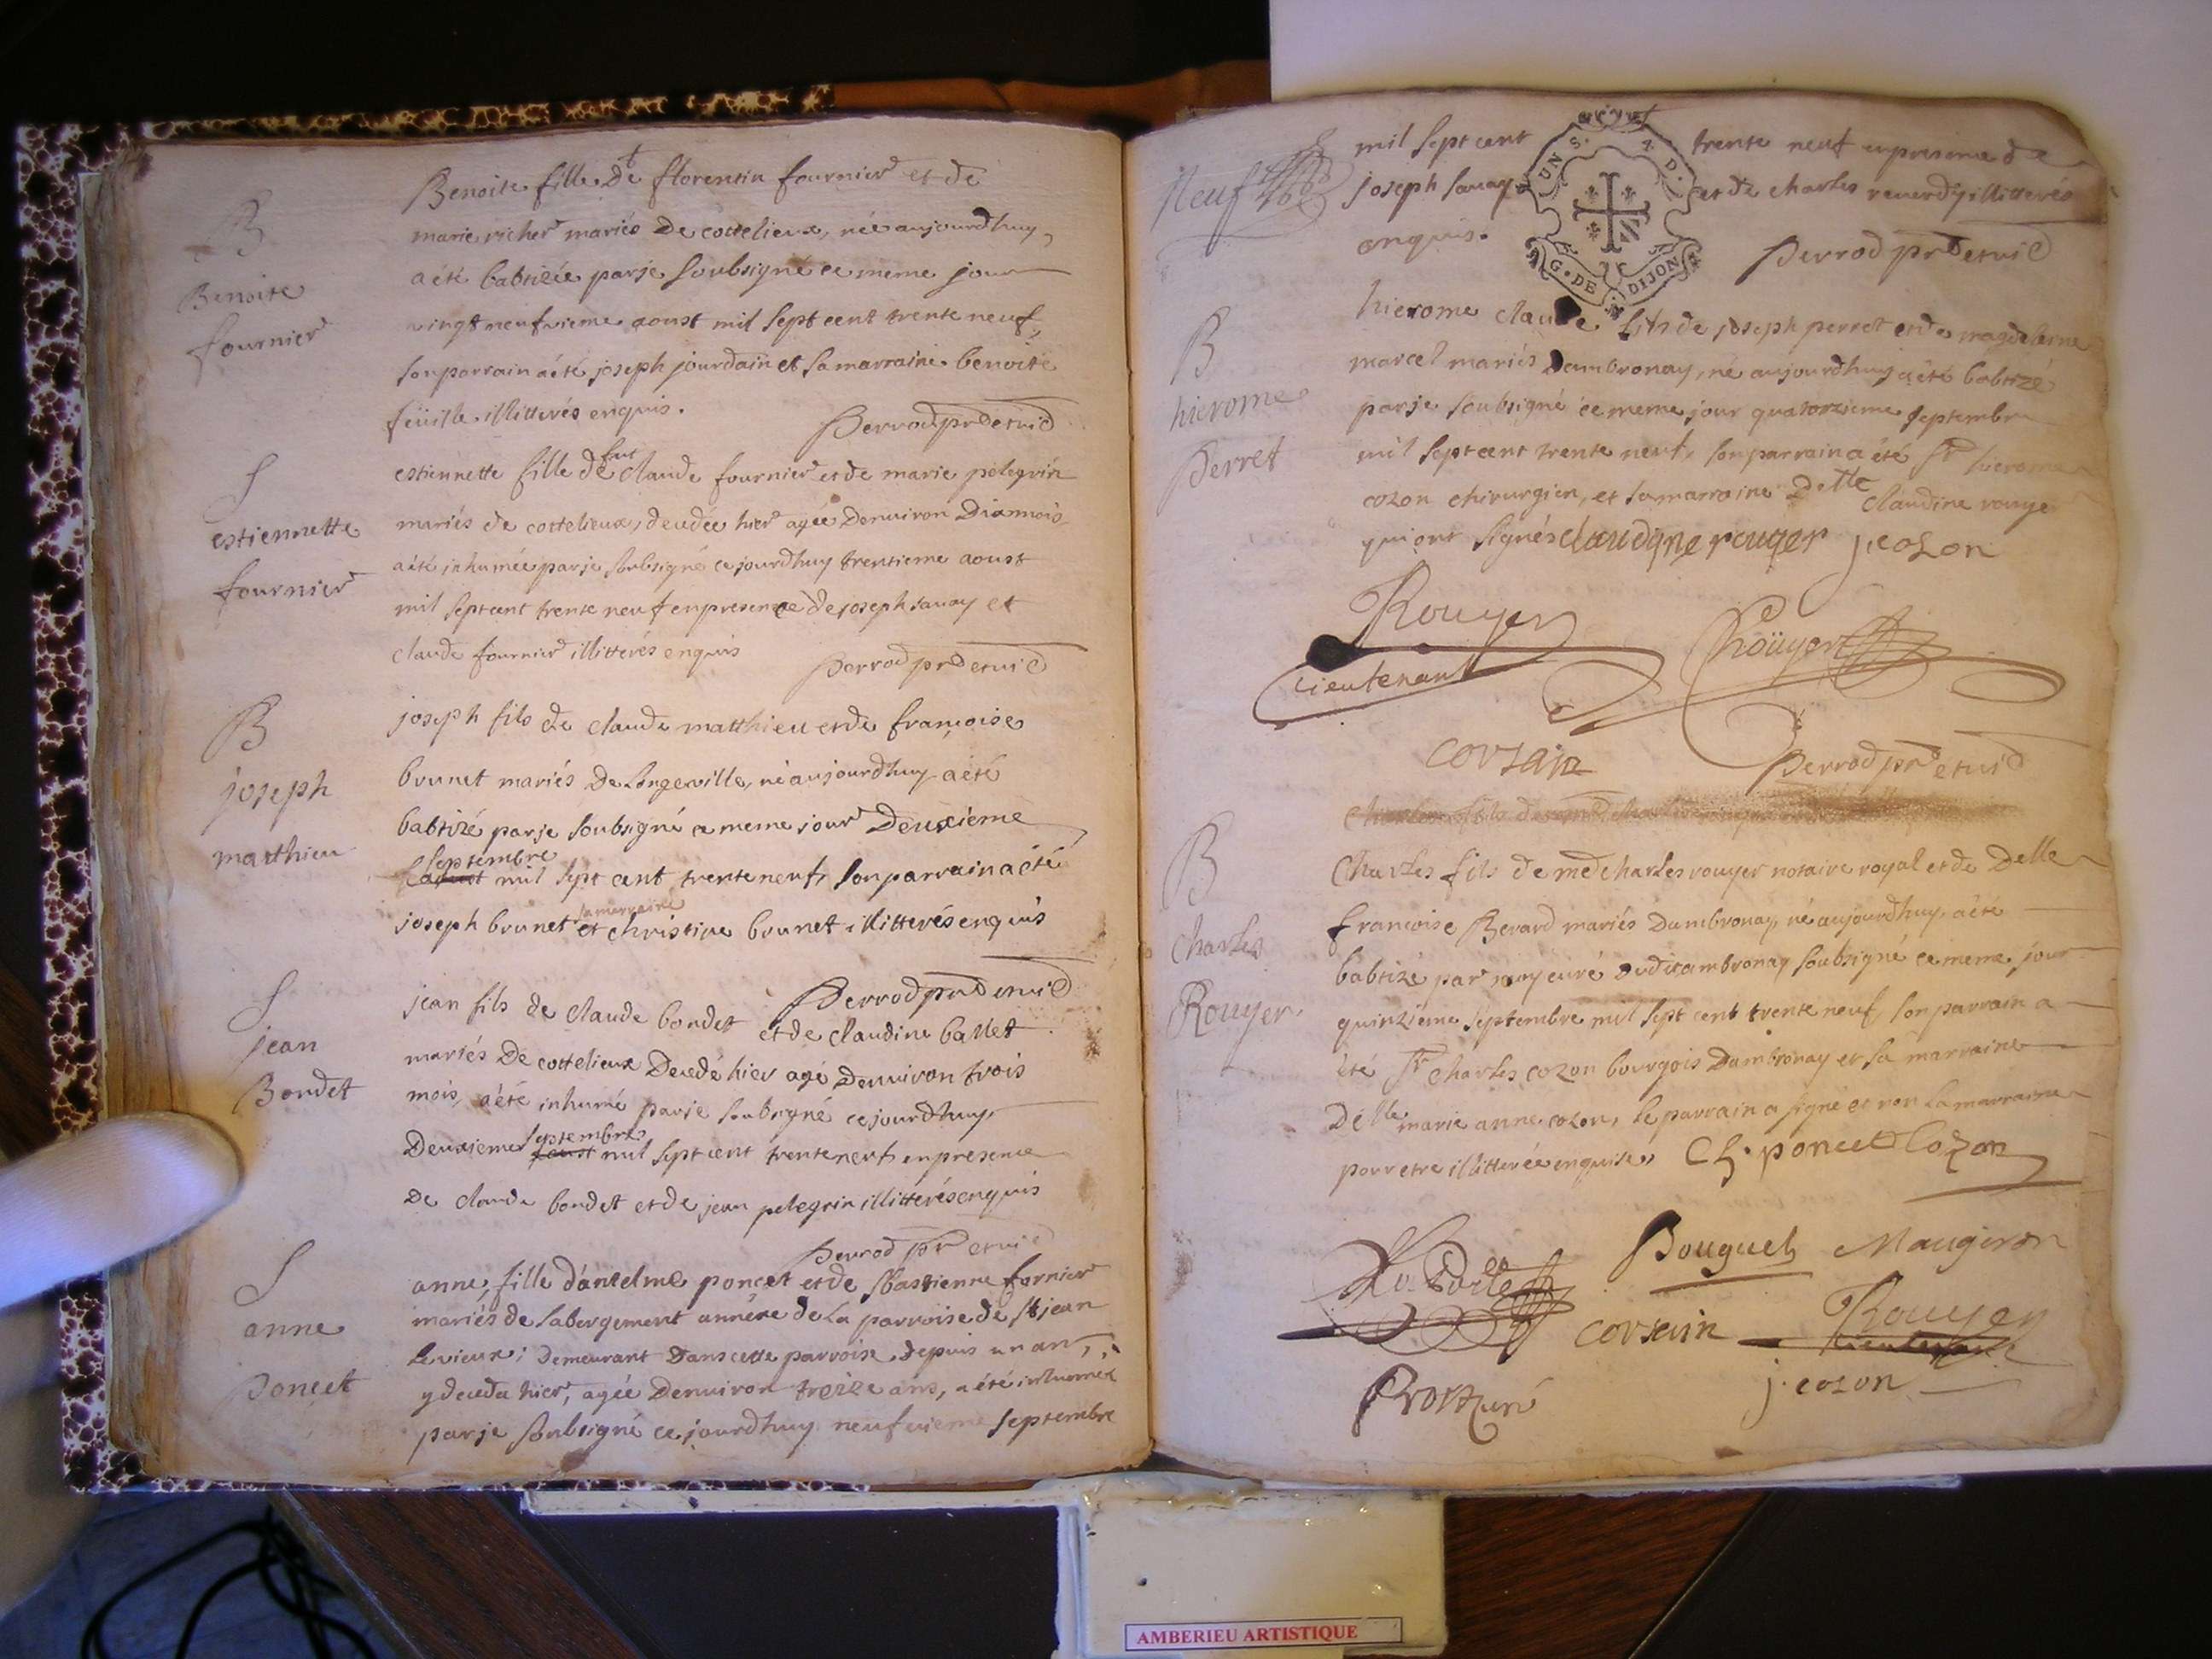 B
Benoite
fournier
Benoite fille de florentin fournier et de
marie richer mariés de cottelieux, née aujourdhuy
a été babtizée par je soubsigné ce meme jour
vingt neufvieme aoust mil sept cent trente neuf,
son parrain a été joseph jourdain et sa marraine benoite
illitterés enquis.
Perrod prb et vic
S
estiennette
fournier
estiennette fille de feut claude fournier et de marie pelegrin
mariés de cottelieux, decedée hier agée denviron dixmois
a été inhumée par je soubsigné ce jourdhuy trentieme aoust
mil sept cent trente neuf en presence de joseph savay et
claude fournier illitterés enquis
Perrod prb et vic
B
joseph
matthieu
joseph fils de claude matthieu et de francoise
brunet mariés de Longeville, né aujourdhuy a été
babtizé par je soubsigné ce meme jour deuxieme
septembre
aoust mil sept cent trente neuf, son parrain a été
joseph brunet et sa marraine christine brunet illitterés enquis
Perrod prb et vic
S
jean
Bondet
jean fils de claude bondet et de claudine ballet
mariés de cottelieux decedé hier agé denviron trois
mois, a été inhumé par je soubsigné ce jourdhuy
deuxieme septembre aoust mil sept cent trente neuf, en presence
de claude bondet et de jean pelegrin illitterés enquis
Perrod prb et vic
S
anne
poncet
anne, fille dantelme poncet et de sbastienne fornier
mariés de labergement annéxe de La parroise de st jean
Levieux; demeurant dans cette parroise depuis un an,
y decedée hier, agée denviron treize ans, a été inhumée
par je soubsigné ce jourdhuy neufvieme septembre
Neuf
mil sept cent trente neuf en presence de
joseph savay et de charles reverdy illitterés
enquis.
UN S. 4 D.
G. DE DIJON
Perrod prb et vic
B
hierome
Perret
hierome claude fils de joseph perret et de magdeleine
marcel mariés dambronay, né aujourdhuy a été babtizé
par je soubsigné ce meme jour quatorzieme septembre
mil sept cent trente neuf, son parrain a été Sr hierome
cozon chirurgien, et sa marraine delle claudine rouyer
qui ont signés claudyne rouyer j. cozon
Rouyer
Lieutenant
Roüyer
corsain
Perrod prb et vic
B
Charles
Rouyer
Charles fils de me charles rouyer notaire royal et de delle
francoise Berard mariés dambronay, né aujourdhuy, a été
babtizé par moy curé dudit ambronay soubsigné ce meme jour
quinzieme septembre mil sept cent trente neuf, son parrain a
été Sr charles cozon bourgois dambronay et sa marraine
delle marie anne cozon, le parrain a signé et non la marraine
pour etre illitterée enquise, Ch. poncet Cozon
Bouguet Maugiron
corsain Rouyer
Lieutenant
j. cozon
AMBERIEU ARTISTIQUE